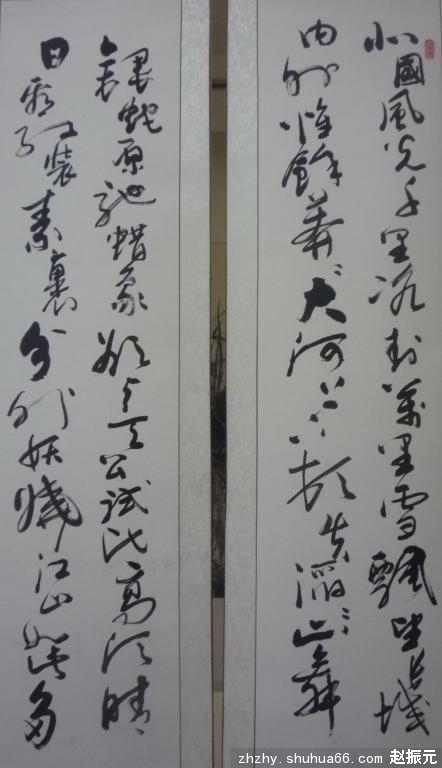 北國風光千里冰封萬里雪飄望长城
内外惟餘莽々大河上下頓失滔々山舞
銀蛇原馳蜡象欲与天公試比高須晴
日看红装素裹分外妖嬈江山如此多
zhzhy.shuhua66.com 赵振元